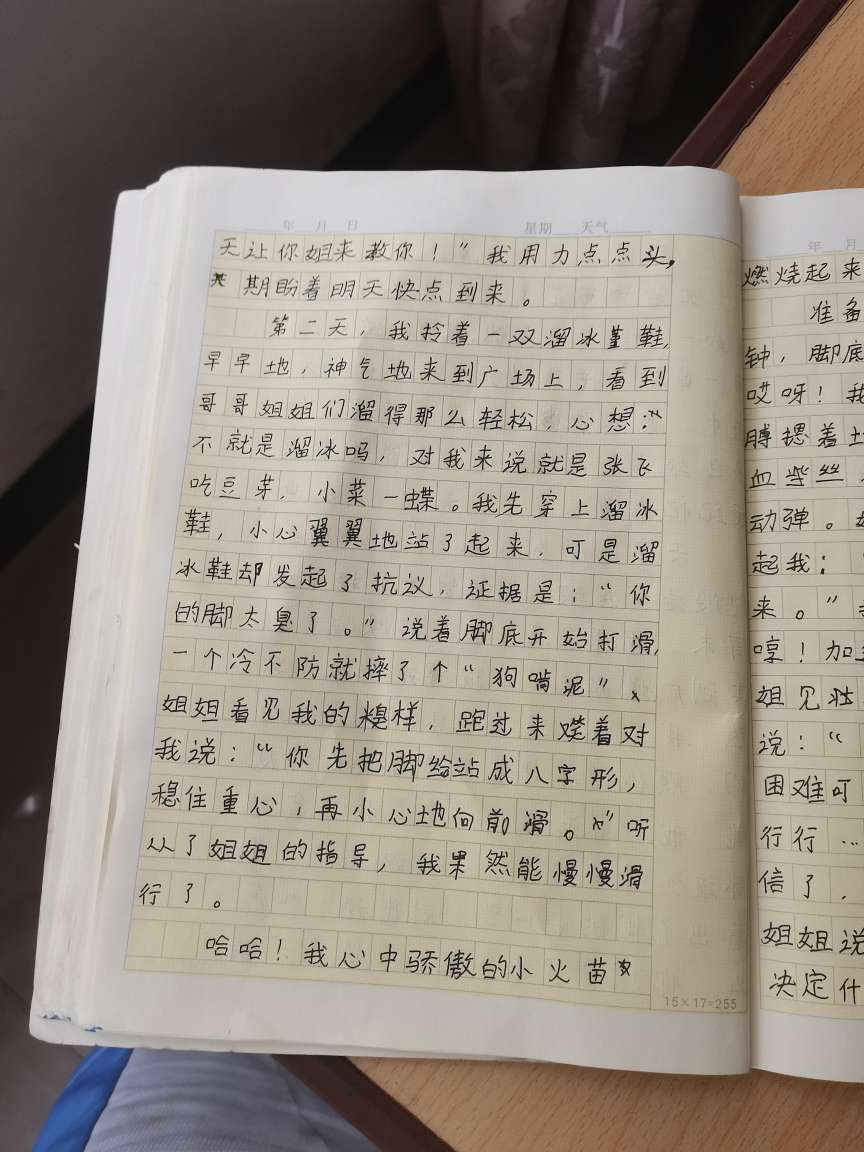 年 月 日 星期 天气
天让你姐来教你！”我用力点点头，
期盼着明天快点到来。
第二天，我拎着一双溜冰鞋，
早早地，神气地来到广场上，看到
哥哥姐姐们溜得那么轻松，心想：“
不就是溜冰吗，对我来说就是张飞
吃豆芽，小菜一蝶。我先穿上溜冰
鞋，小心翼翼地站了起来，可是溜
冰鞋却发起了抗议，证据是：“你
的脚太臭了。”说着脚底开始打滑，
一个冷不防就摔了个“狗啃泥”、
姐姐看见我的糗样，跑过来笑着对
我说：“你先把脚给站成八字形，
稳住重心，再小心地向前滑。”听
从了姐姐的指导，我果然能慢慢滑
行了。
哈哈！我心中骄傲的小火苗
15×17=255
年 月
燃烧起来
准备
钟，脚底
哎呀！我
膊摁着土
血丝
动弹。
起我：“
来。”
哼！加
姐见状
说：“
困难可
行行…
信了，
姐姐说
决定什